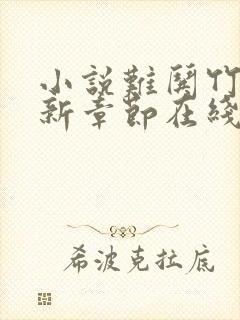 小説難關竹
新章節在綫
希波克拉底